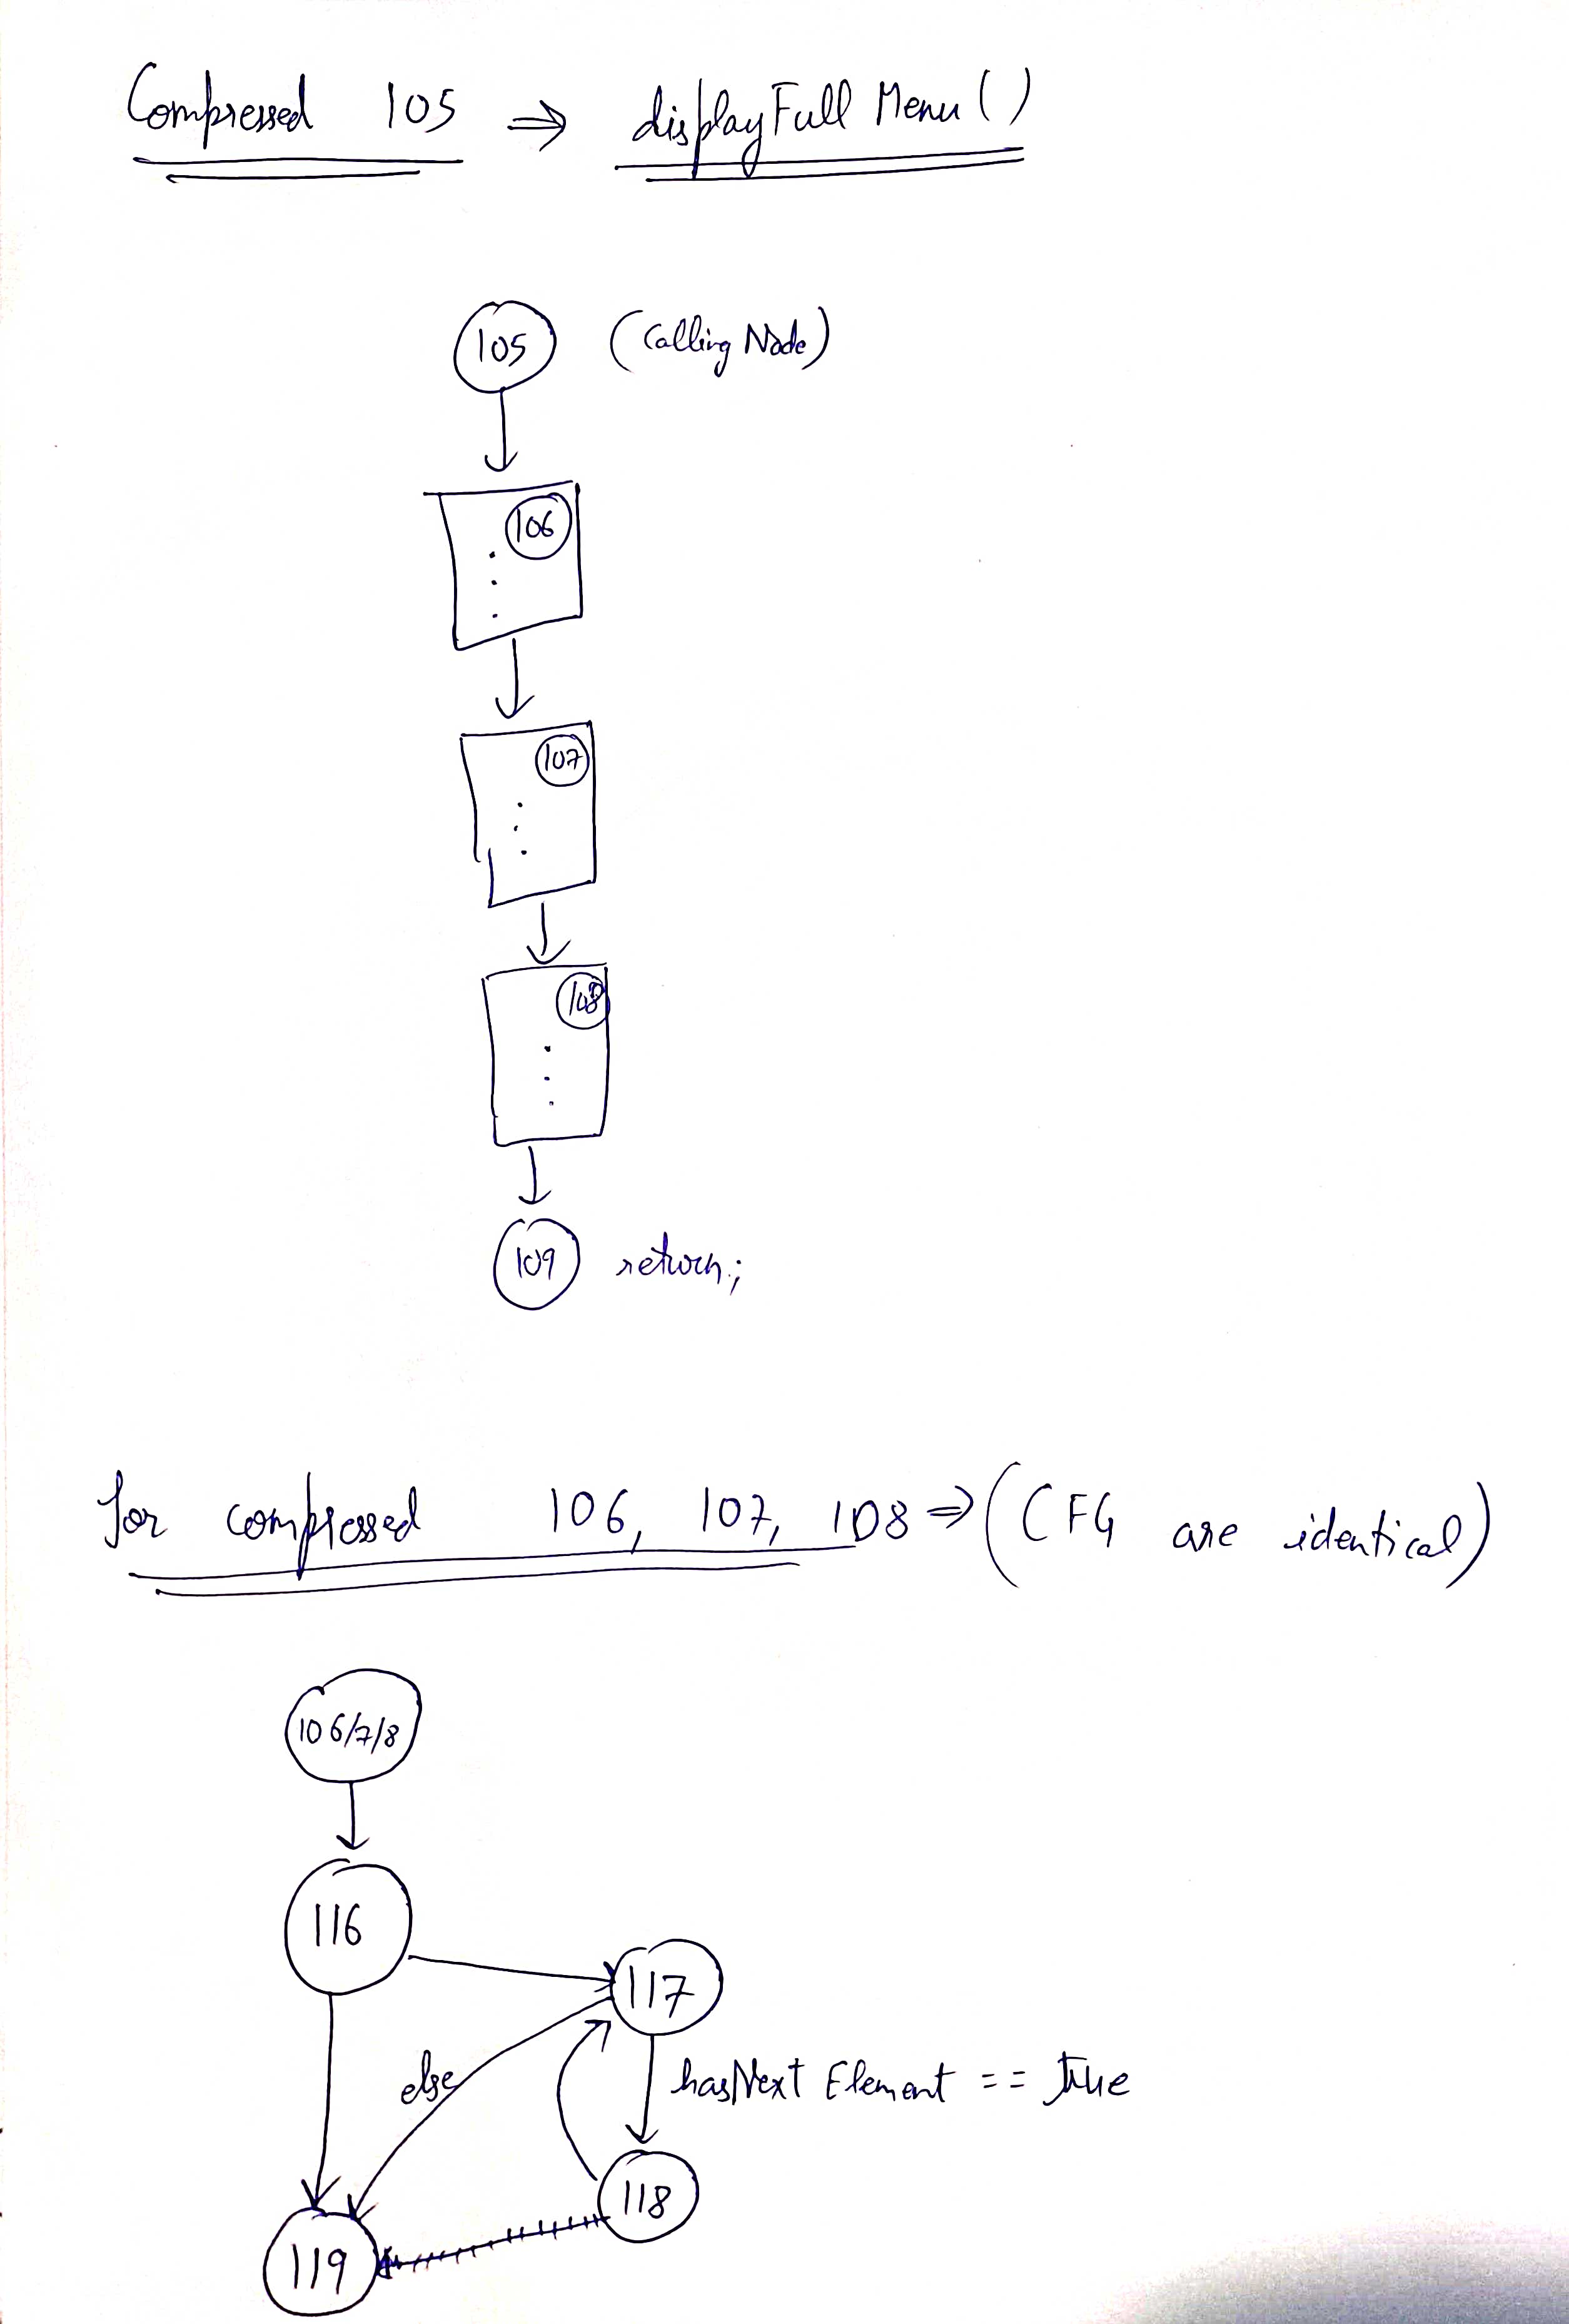 Compressed 105 ⇒ displayFull Menu()
105 (Calling Node)
106
107
108
109 return;
for compressed 106, 107, 108 ⇒ (CFG are identical)
106/7/8
116
117
else hasNext Element == true
118
119